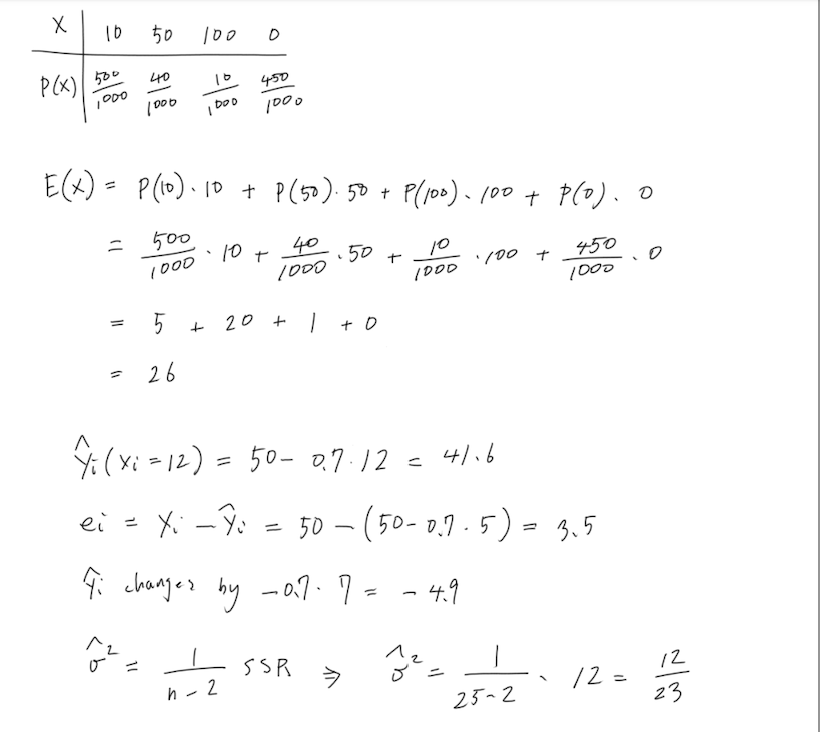 X | 10 50 100 0
P(x) | 500/1000 40/1000 10/1000 450/1000
E(x) = P(10)·10 + P(50)·50 + P(100)·100 + P(0)·0
= 500/1000 · 10 + 40/1000 · 50 + 10/1000 · 100 + 450/1000 · 0
= 5 + 20 + 1 + 0
= 26
Ŷi (xi = 12) = 50 - 0.7·12 = 41.6
ei = Yi - Ŷi = 50 - (50 - 0.7·5) = 3.5
Ŷi changes by -0.7·7 = -4.9
σ̂² = 1/(n-2) SSR ⇒ σ̂² = 1/(25-2) · 12 = 12/23